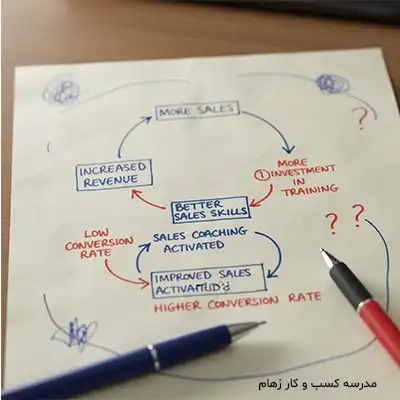 MORE SALES
?
INCREASED
REVENUE
MORE
① INVESTMENT
IN
TRAINING
BETTER
SALES SKILLS
? ?
LOW
CONVERSION
RATE
SALES COACHING
ACTIVATED
IMPROVED SALES
HIGHER CONVERSION RATE
مدرسه کسب و کار ژهام